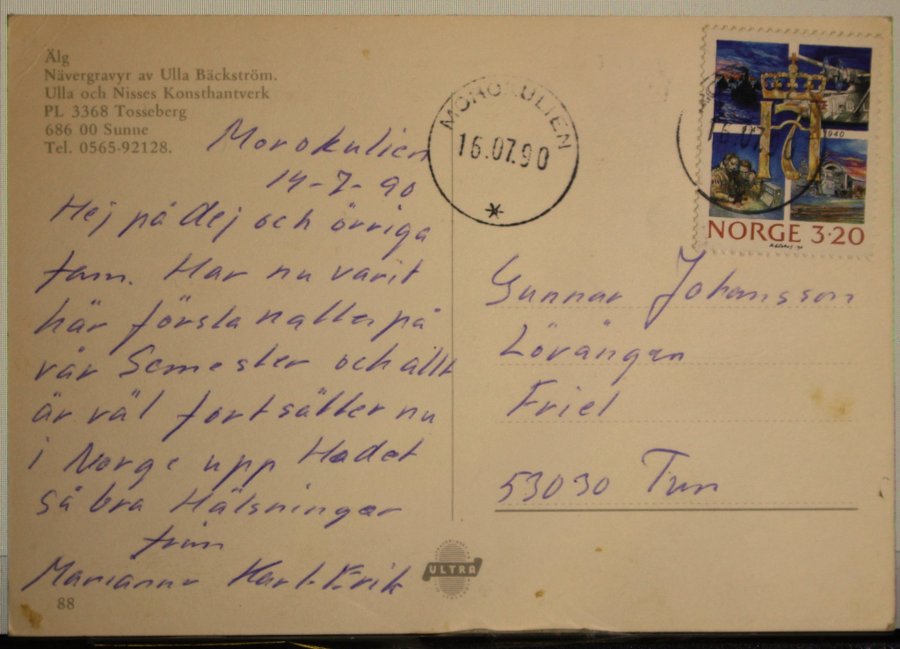 Älg
Nävergravyr av Ulla Bäckström.
Ulla och Nisses Konsthantverk
PL 3368 Tosseberg
686 00 Sunne
Tel. 0565-92128.
Morokulien
14-7-90
Hej på dej och övriga
fam. Har nu varit
här första natten på
vår Semester och allt
är väl fortsätter nu
i Norge upp Hadet
så bra Hälsningar
från
Marianne Karl-Erik
88
ULTRA
MOROKULIEN
16.07.90
MO
16.07
1940
NORGE 3.20
Gunnar Johansson
Lövängen
Friel
53030 Tun